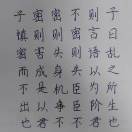 子曰乱之所生也
则言语以为阶君
不密则失臣臣不
密则失身机事不
密则害成是以君
子慎密而不出也